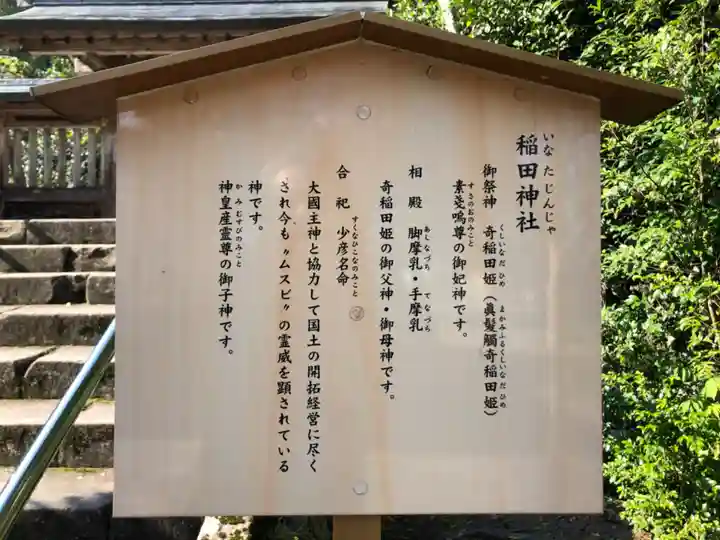 稲田神社
いなたじんじゃ
御祭神 奇稲田姫（眞髪觸奇稲田姫）
くしいなだひめ まかみふるくしいなだひめ
素戔嗚尊の御妃神です。
すさのおのみこと
相殿 脚摩乳・手摩乳
あしなづち てなづち
奇稲田姫の御父神・御母神です。
合祀 少彦名命
すくなひこなのみこと
大國主神と協力して国土の開拓経営に尽く
され今も〝ムスビ〟の霊威を顕されている
神です。
神皇産霊尊の御子神です。
かみむすびのみこと